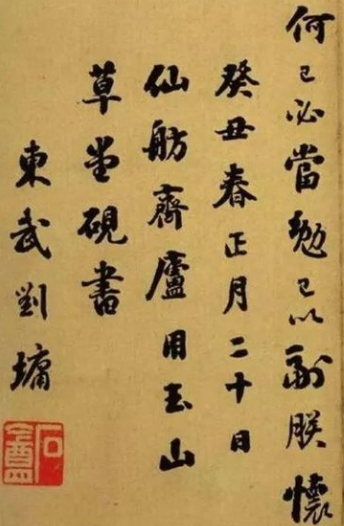 何已必當勉已以副朕懷
癸丑春正月二十日
仙舫齋廬用玉山
草堂硯書
東武劉墉
石庵